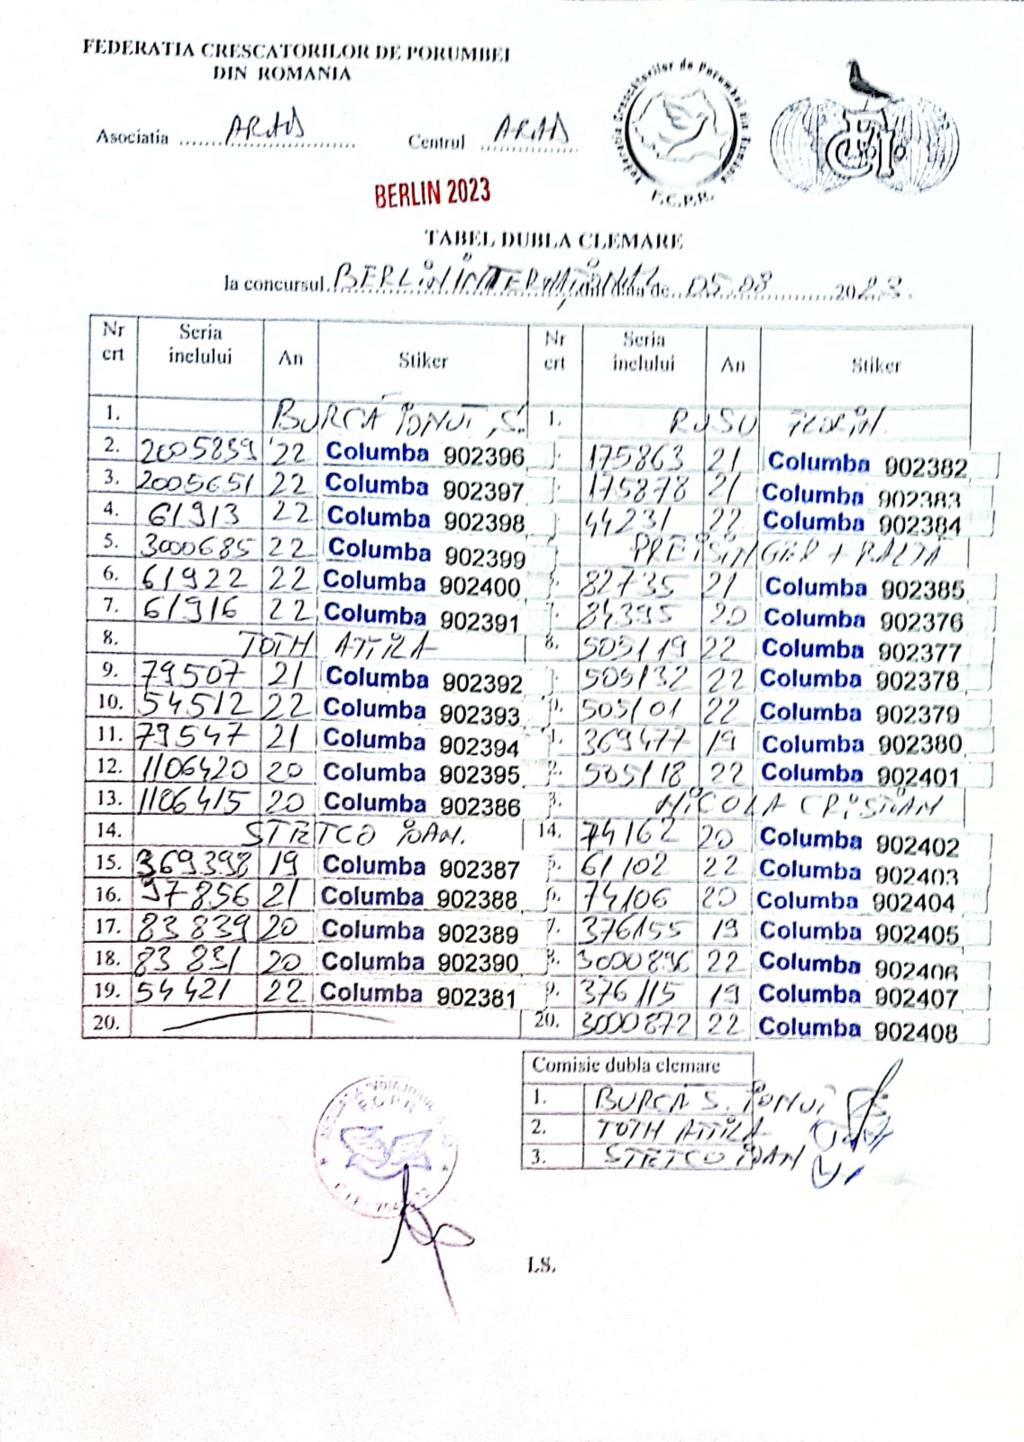 FEDERATIA CRESCATORILOR DE PORUMBEI
DIN ROMANIA
Asociatia ARAD Centrul ARAD
Federatia Crescatorilor de Porumbei din Romania
F.C.P.R.
BERLIN 2023
TABEL DUBLA CLEMARE
la concursul BERLIN INTERNAȚIONAL din data de 05.08 2023.
Nr crt Seria inelului An Stiker Nr crt Seria inelului An Stiker
1. BURCĂ IONUȚ S. 1. RUSU FLORIN
2. 2005859 22 Columba 902396 175863 21 Columba 902382
3. 2005651 22 Columba 902397 175878 21 Columba 902383
4. 61913 22 Columba 902398 44231 22 Columba 902384
5. 3000685 22 Columba 902399 PREISINGER + BALTA
6. 61922 22 Columba 902400 82735 21 Columba 902385
7. 61916 22 Columba 902391 84395 20 Columba 902376
8. TOTH ATTILA 8. 505119 22 Columba 902377
9. 79507 21 Columba 902392 505132 22 Columba 902378
10. 54512 22 Columba 902393 505101 22 Columba 902379
11. 79547 21 Columba 902394 1. 369477 19 Columba 902380
12. 1106420 20 Columba 902395 2. 505118 22 Columba 902401
13. 1106415 20 Columba 902386 3. NICOLA CRISTIAN
14. STETCO IOAN. 14. 74162 20 Columba 902402
15. 369398 19 Columba 902387 5. 61102 22 Columba 902403
16. 97856 21 Columba 902388 6. 74106 20 Columba 902404
17. 83839 20 Columba 902389 7. 376155 19 Columba 902405
18. 83831 20 Columba 902390 8. 3000896 22 Columba 902406
19. 54421 22 Columba 902381 9. 376115 19 Columba 902407
20. 20. 3000872 22 Columba 902408
Comisie dubla clemare
1. BURCĂ S. IONUȚ
2. TOTH ATTILA
3. STETCO IOAN
F.C.P.R.
I.S.